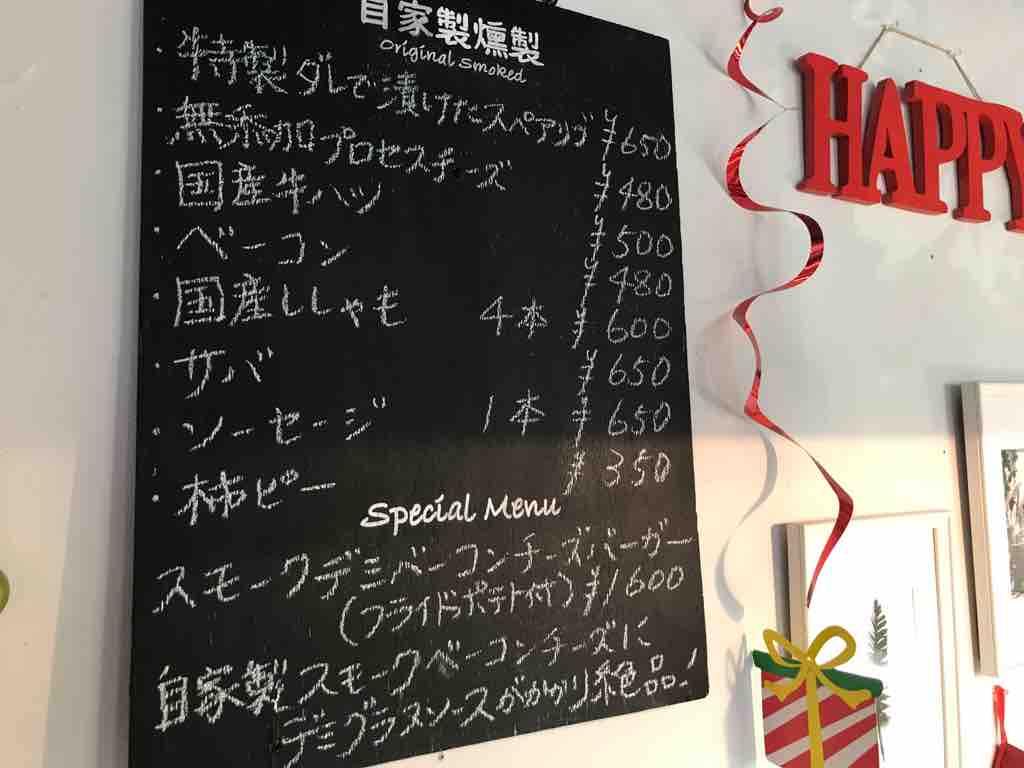 自家製燻製
Original Smoked
・特製ダレで漬けたスペアリブ ¥650
・無添加プロセスチーズ ¥480
・国産牛ハツ ¥500
・ベーコン ¥480
・国産ししゃも 4本 ¥600
・サバ ¥650
・ソーセージ 1本 ¥650
・柿ピー ¥350
Special Menu
スモークデミベーコンチーズバーガー
(フライドポテト付) ¥1600
自家製スモークベーコンチーズに
デミグラスソースがかかり絶品!
HAPPY